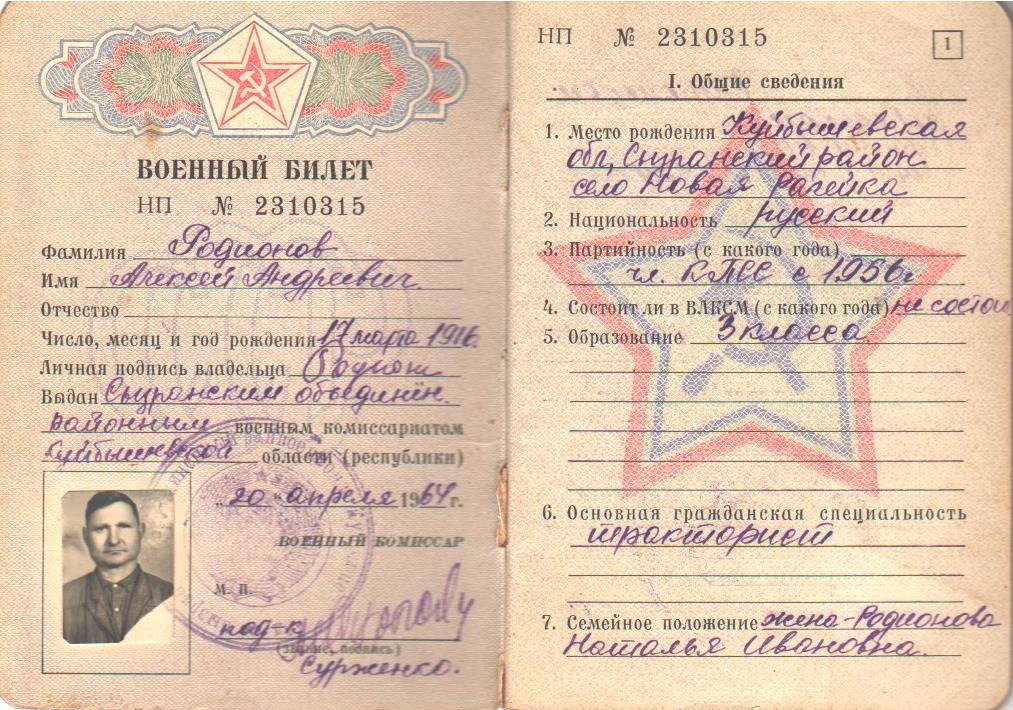 ВОЕННЫЙ БИЛЕТ
НП № 2310315
Фамилия Родионов
Имя Алексей Андреевич
Отчество
Число, месяц и год рождения 17 марта 1916
Личная подпись владельца Родион
Выдан Сызранским объединён.
районным военным комиссариатом
Куйбышевской области (республики)
„20“ апреля 1964 г.
ВОЕННЫЙ КОМИССАР
М. П.
под-к
(звание, подпись)
Сурженко.
НП № 2310315
1
I. Общие сведения
1. Место рождения Куйбышевская
обл, Сызранский район
село Новая Рачейка
2. Национальность русский
3. Партийность (с какого года)
чл. КПСС с 1956г
4. Состоит ли в ВЛКСМ (с какого года) не состоял
5. Образование 3 класса
6. Основная гражданская специальность
тракторист
7. Семейное положение жена-Родионова
Наталья Ивановна.